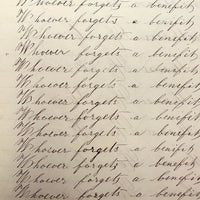 Whoever forgets a benefit,
Whoever forgets a benefit,
Whoever forgets a benefit,
Whoever forgets a benefit,
Whoever forgets a benefit,
Whoever forgets a benefit,
Whoever forgets a benefit,
Whoever forgets a benefit,
Whoever forgets a benefit,
Whoever forgets a benefit,
Whoever forgets a benefit,
Whoever forgets a benefit,
Whoever forgets a benefit,